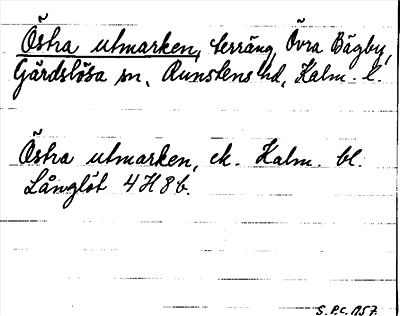 Östra utmarken, terräng Övra Bägby,
Gärdslösa sn, Runstens hd, Kalm. l.
Östra utmarken, ek. Kalm. bl.
Långlöt 4H8b.
S.P.C. 1957